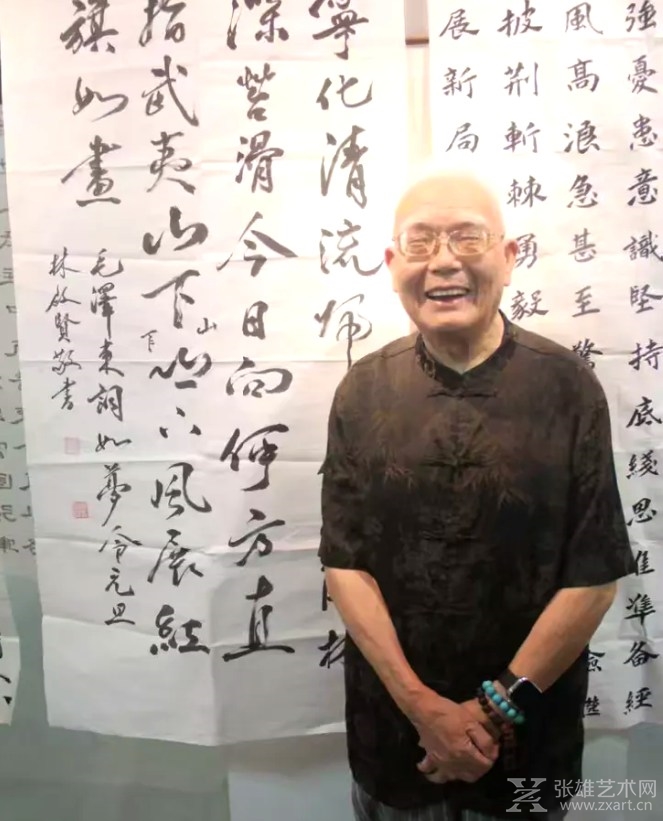 強憂患意識堅持底綫思維準备經
風高浪急甚至驚
披荆斬棘勇毅
展新局
寧化清流歸
林
深苔滑今日向何方直
指武夷山下山下風展紅
旗如畫
毛澤東詞如夢令元旦
林啟賢敬书
张雄艺术网
www.zxart.cn